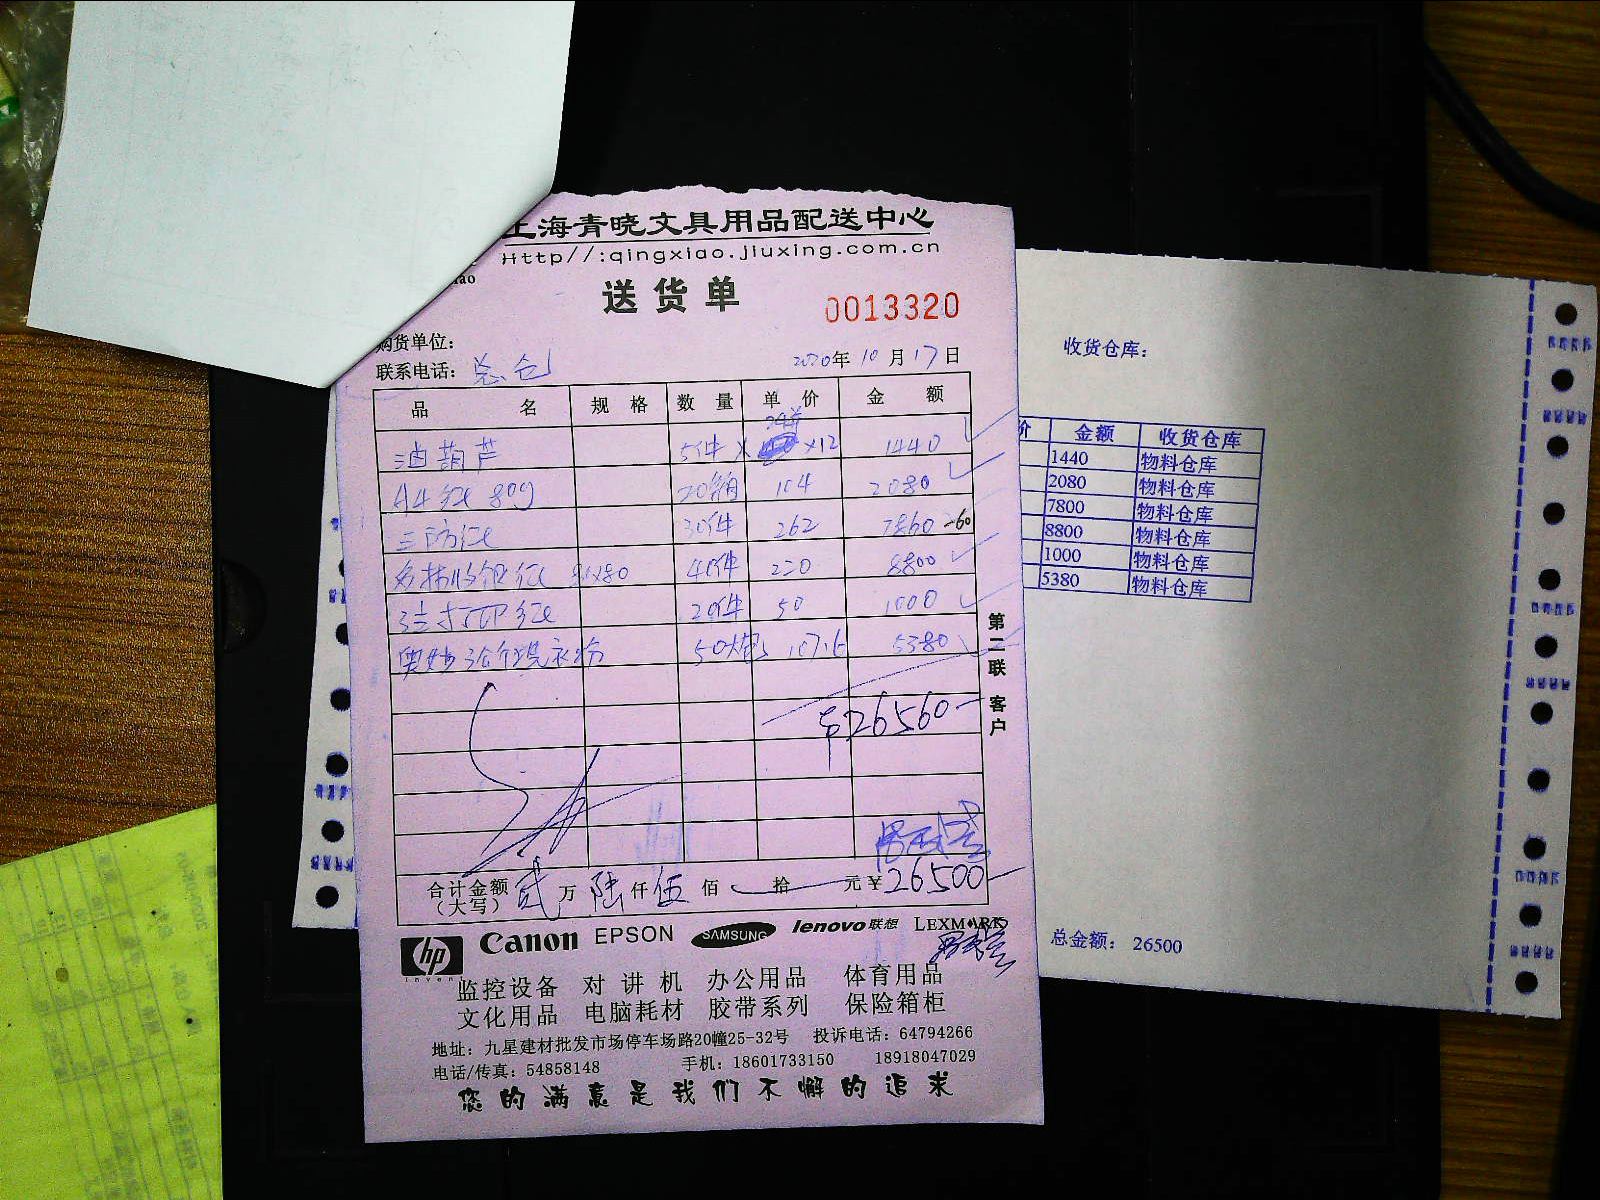 上海青晓文具用品配送中心
Http//:qingxiao.jiuxing.com.cn
送货单
0013320
购货单位:
联系电话: 总仓 2020年 10月 17日
品 名 规 格 数 量 单 价 金 额
油葫芦 5件 × 24 ×12 1440
A4纸 80g 20箱 104 2080
三防纸 30件 262 7860 -60
80 40件 220 8800
纸 20件 50 1000
奥妙 洗衣粉 50 107.6 5380
第二联 客户
26560
合计金额(大写) 贰万陆仟伍佰 拾 元¥26500
hp invent Canon EPSON SAMSUNG lenovo联想 LEXMARK
监控设备 对讲机 办公用品 体育用品
文化用品 电脑耗材 胶带系列 保险箱柜
地址: 九星建材批发市场停车场路20幢25-32号 投诉电话: 64794266
电话/传真: 54858148 手机: 18601733150 18918047029
您的满意是我们不懈的追求
收货仓库:
价 金额 收货仓库
1440 物料仓库
2080 物料仓库
7800 物料仓库
8800 物料仓库
1000 物料仓库
5380 物料仓库
总金额: 26500